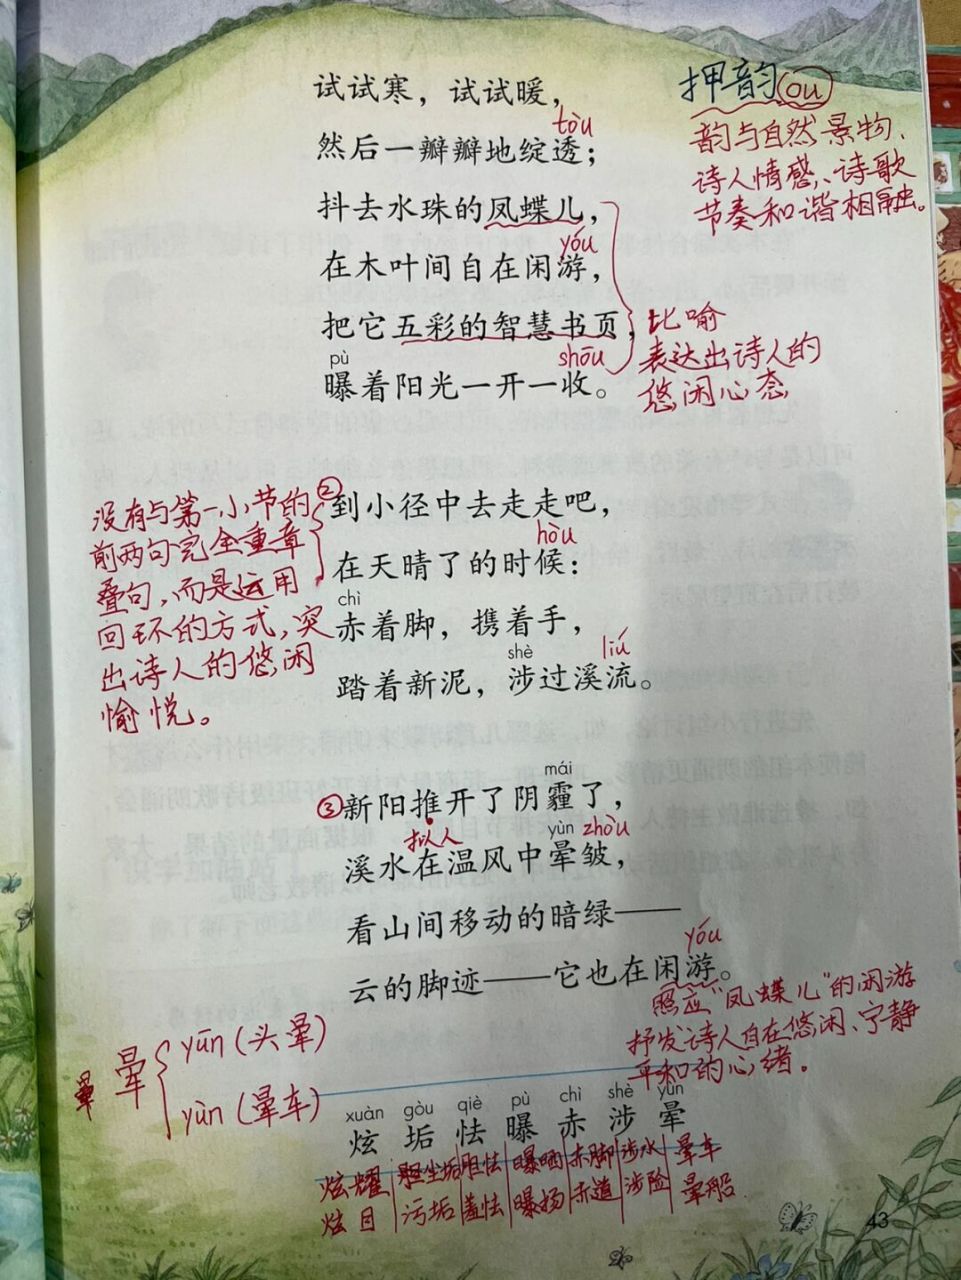 试试寒，试试暖，
押韵 ou
tòu
然后一瓣瓣地绽透；
韵与自然景物、
诗人情感、诗歌
节奏和谐相融。
抖去水珠的凤蝶儿，
yóu
在木叶间自在闲游，
把它五彩的智慧书页，
比喻
表达出诗人的
悠闲心态
pù shōu
曝着阳光一开一收。
没有与第一小节的
前两句完全重章
叠句，而是运用
回环的方式，突
出诗人的悠闲
愉悦。
②到小径中去走走吧，
hòu
在天晴了的时候：
chì
赤着脚，携着手，
shè liú
踏着新泥，涉过溪流。
mái
③新阳推开了阴霾了，
拟人 yùn zhòu
溪水在温风中晕皱，
看山间移动的暗绿——
yóu
云的脚迹——它也在闲游。
照应“凤蝶儿”的闲游
抒发诗人自在悠闲、宁静
平和的心绪。
晕 yūn（头晕）
yùn（晕车）
xuàn gòu qiè pù chì shè yùn
炫 垢 怯 曝 赤 涉 晕
炫耀 尘垢 胆怯 曝晒 赤脚 涉水 晕车
炫目 污垢 羞怯 曝扬 赤道 涉险 晕船
43